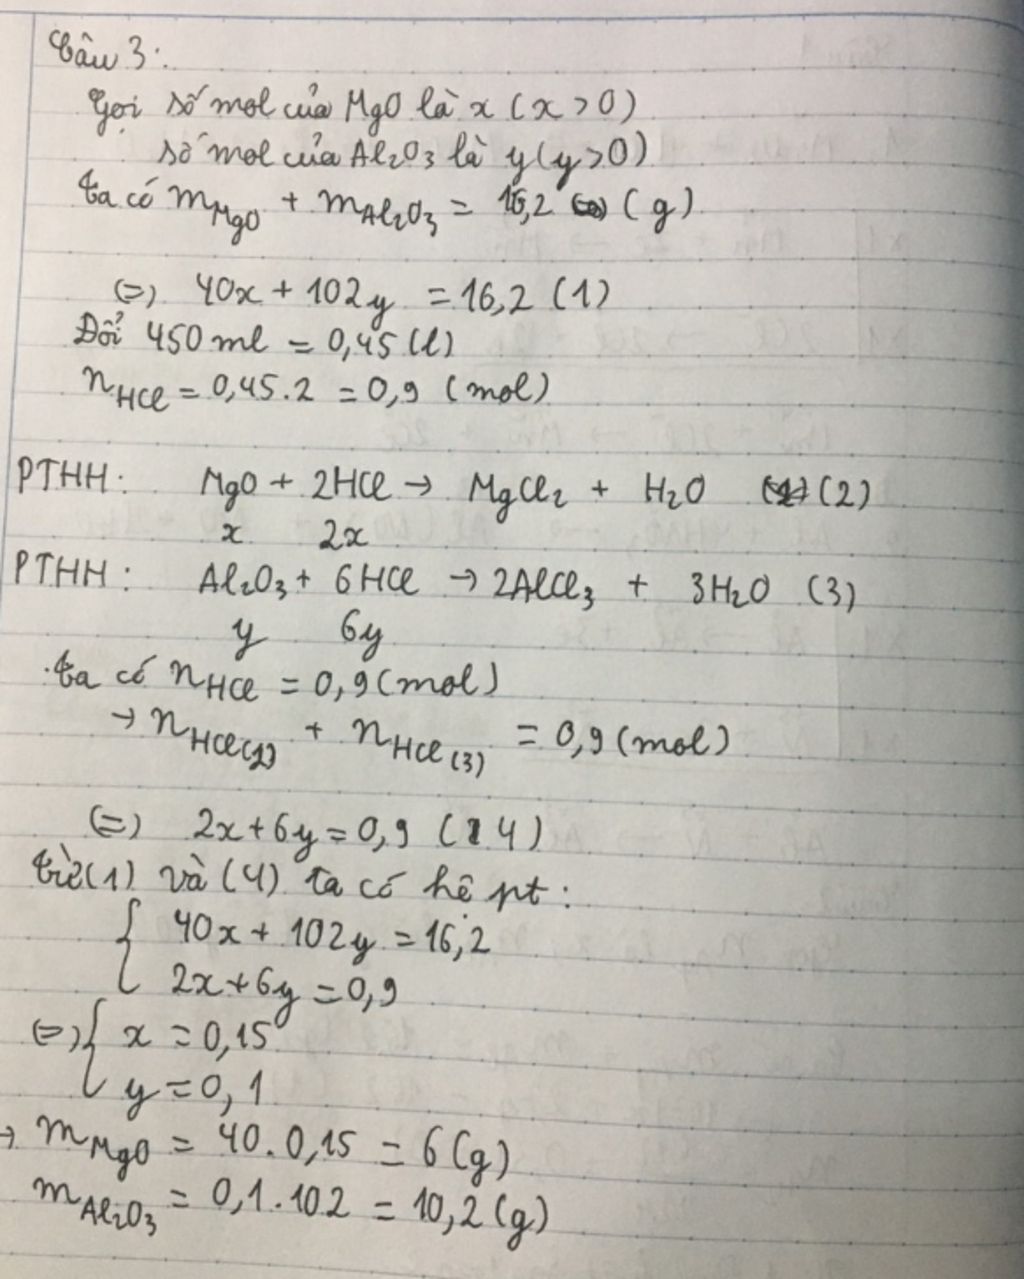 Câu 3:
Gọi số mol của MgO là x (x > 0)
số mol của Al₂O₃ là y (y > 0)
Ta có m_MgO + m_Al₂O₃ = 16,2 (g)
(=) 40x + 102y = 16,2 (1)
Đổi 450 ml = 0,45 (l)
n_HCl = 0,45.2 = 0,9 (mol)
PTHH: MgO + 2HCl → MgCl₂ + H₂O (2)
x 2x
PTHH: Al₂O₃ + 6HCl → 2AlCl₃ + 3H₂O (3)
y 6y
Ta có n_HCl = 0,9 (mol)
→ n_HCl(2) + n_HCl(3) = 0,9 (mol)
(=) 2x + 6y = 0,9 (4)
Từ (1) và (4) ta có hê pt:
{ 40x + 102y = 16,2
2x + 6y = 0,9
(=) { x = 0,15
y = 0,1
→ m_MgO = 40.0,15 = 6 (g)
m_Al₂O₃ = 0,1.102 = 10,2 (g)